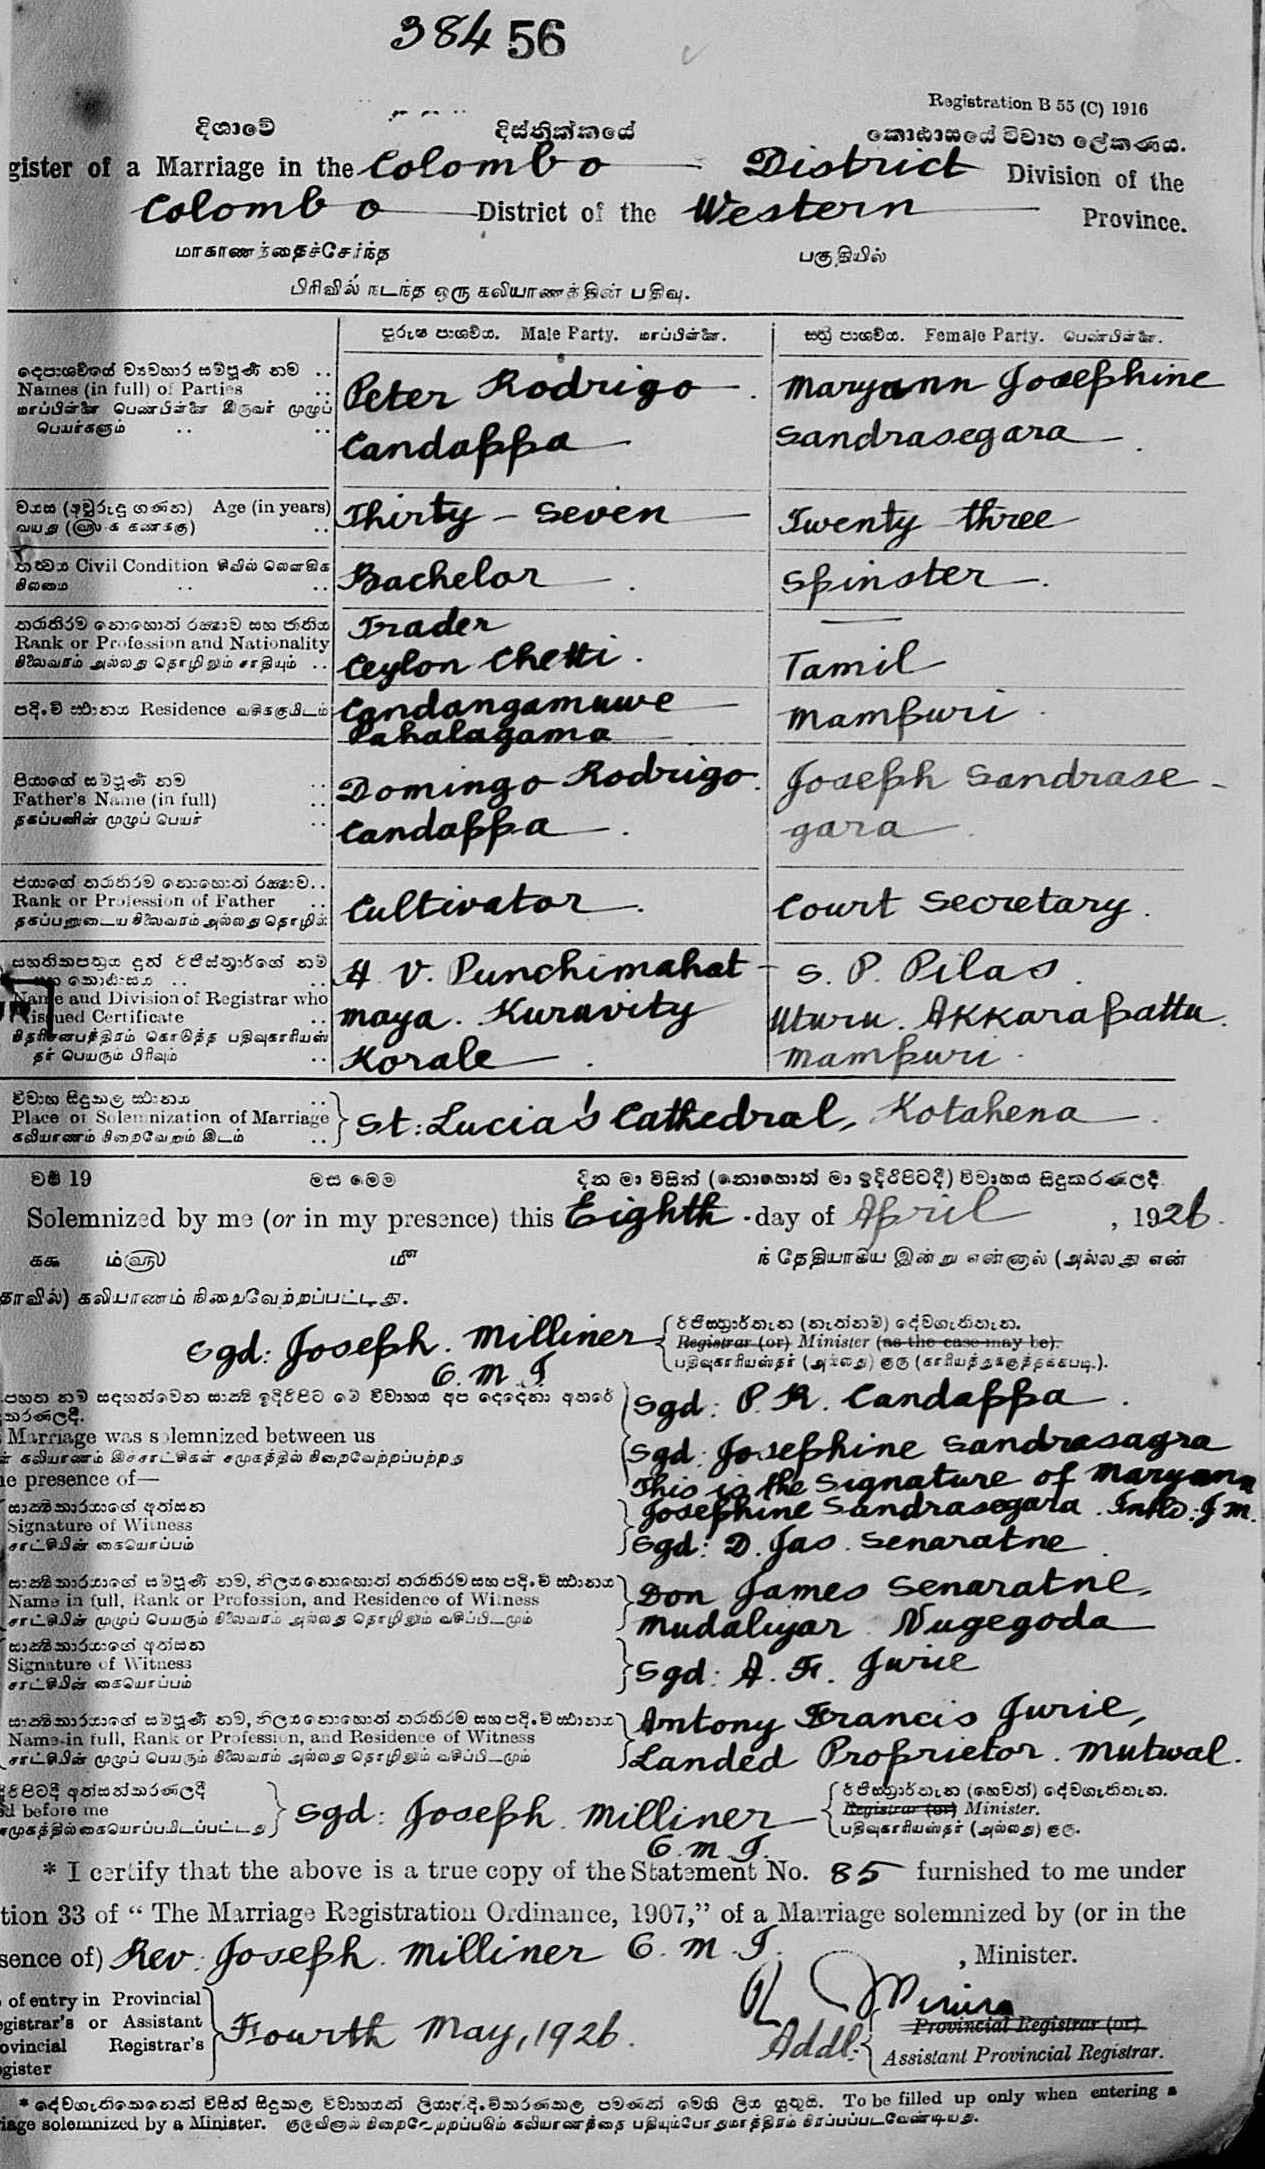 384 56
Registration B 55 (C) 1916
දිශාවේ දිස්ත්‍රික්කයේ කොඨාසයේ විවාහ ලේකණය.
gister of a Marriage in the Colombo District Division of the
Colombo District of the Western Province.
மாகாணத்தைச்சேர்ந்த பகுதியில்
பிரிவில் நடந்த ஒரு கலியாணத்தின் பதிவு.
පුරුෂ පාශව්ය. Male Party. மாப்பிள்ளை. ස්ත්‍රී පාශව්ය. Female Party. பெண்பிள்ளை.
දෙපාශව්යේ ව්‍යවහාර සම්පූර්ණ නම ..
Names (in full) of Parties ..
மாப்பிள்ளை பெண்பிள்ளை இருவர் முழுப்
பெயர்களும் .. ..
Peter Rodrigo Maryann Josephine
Candappa Sandrasegara
වයස (අවුරුදු ගණන) Age (in years)
வயது (ஆக கணக்கு) ..
Thirty-Seven Twenty three
තත්වය Civil Condition சிவில் லௌகிக
நிலைமை .. ..
Bachelor Spinster
තරාතිරම නොහොත් රක්ෂාව සහ ජාතිය
Rank or Profession and Nationality
நிலைவரம் அல்லது தொழிலும் சாதியும் ..
Trader —
Ceylon Chetti. Tamil
පදිංචි ස්ථානය Residence வசிக்குமிடம்
Candangamuwe Mampuri
Pahalagama
පියාගේ සම්පූර්ණ නම ..
Father's Name (in full) ..
தகப்பனின் முழுப் பெயர் ..
Domingo Rodrigo Joseph Sandrase-
Candappa gara
පියාගේ තරාතිරම නොහොත් රක්ෂාව..
Rank or Profession of Father ..
தகப்பனுடைய நிலைவரம் அல்லது தொழில்
Cultivator Court Secretary.
සහතිකපත්‍රය දුන් රිජිස්ත්‍රාර්ගේ නම
සහ කොඨාසය .. ..
Name and Division of Registrar who
issued Certificate ..
அத்தாட்சிப்பத்திரம் கொடுத்த பதிவுகாரியஸ்
தர் பெயரும் பிரிவும் ..
H. V. Punchimahat- S. P. Pilas
maya. Kuruvity Uturu. Akkarapattu.
Korale Mampuri
විවාහ සිදුකල ස්ථානය ..
Place of Solemnization of Marriage
கலியாணம் நிறைவேறும் இடம் ..
St: Lucia's Cathedral, Kotahena
වර්ෂ 19 මස මෙම දින මා විසින් (නොහොත් මා ඉදිරිපිටදී) විවාහය සිදුකරණලදී
Solemnized by me (or in my presence) this Eighth day of April, 1926.
ககூ ம்ஆ மீ ந் தேதியாகிய இன்று என்னால் (அல்லது என்
தாவில்) கலியாணம் நிறைவேற்றப்பட்டது.
රිජිස්ත්‍රාර්තැන (නැත්නම්) දේවගැතිතැන.
Sgd: Joseph. Milliner Registrar (or) Minister (as the case may be).
O. M. I. பதிவுகாரியஸ்தர் (அல்லது) குரு (காரியத்துக்குத்தக்கபடி.).
පහත නම් සඳහන්වෙන සාක්ෂි ඉදිරිපිට මේ විවාහය අප දෙදෙනා අතරේ
කරණලදී.
Marriage was solemnized between us
ன் கலியாணம் இச்சாட்சிகள் சமுகத்தில் நிறைவேற்றப்பற்றது
he presence of—
Sgd: P. R. Candappa
Sgd: Josephine Sandrasagra
This is the Signature of Maryann
Josephine Sandrasegara. Intld: J M.
සාක්ෂිකාරයාගේ අත්සන
Signature of Witness
சாட்சியின் கையொப்பம்
Sgd: D. Jas. Senaratne
සාක්ෂිකාරයාගේ සම්පූර්ණ නම, නිලය නොහොත් තරාතිරම සහ පදිංචි ස්ථානය
Name in full, Rank or Profession, and Residence of Witness
சாட்சியின் முழுப் பெயரும் நிலைவரம் அல்லது தொழிலும் வசிப்பிடமும்
Don James Senaratne,
Mudaliyar Nugegoda
සාක්ෂිකාරයාගේ අත්සන
Signature of Witness
சாட்சியின் கையொப்பம்
Sgd: A. F. Jurie
සාක්ෂිකාරයාගේ සම්පූර්ණ නම, නිලය නොහොත් තරාතිරම සහ පදිංචි ස්ථානය
Name in full, Rank or Profession, and Residence of Witness
சாட்சியின் முழுப் பெயரும் நிலைவரம் அல்லது தொழிலும் வசிப்பிடமும்
Antony Francis Jurie,
Landed Proprietor. Mutwal.
දිරිපිටදී අත්සන්කරණලදී
ed before me
சமுகத்தில் கையொப்பமிடப்பட்டது
Sgd: Joseph. Milliner
O. M. I.
රිජිස්ත්‍රාර්තැන (හෙවත්) දේවගැතිතැන.
Registrar (or) Minister.
பதிவுகாரியஸ்தர் (அல்லது) குரு.
* I certify that the above is a true copy of the Statement No. 85 furnished to me under
tion 33 of “ The Marriage Registration Ordinance, 1907,” of a Marriage solemnized by (or in the
sence of) Rev: Joseph. Milliner O. M. I., Minister.
of entry in Provincial
egistrar's or Assistant
ovincial Registrar's
gister
Fourth May, 1926.
Provincial Registrar (or)
Addl: Assistant Provincial Registrar.
* දේවගැතිකෙනෙක් විසින් සිදුකල විවාහයක් ලියාපදිංචිකරණකල පමණක් මෙහි ලිය යුතුයි. To be filled up only when entering a
riage solemnized by a Minister. குருவினால் நிறைவேற்றப்படும் கலியாணத்தை பதியும்போதுமாத்திரம் நிரப்பப்படவேண்டியது.